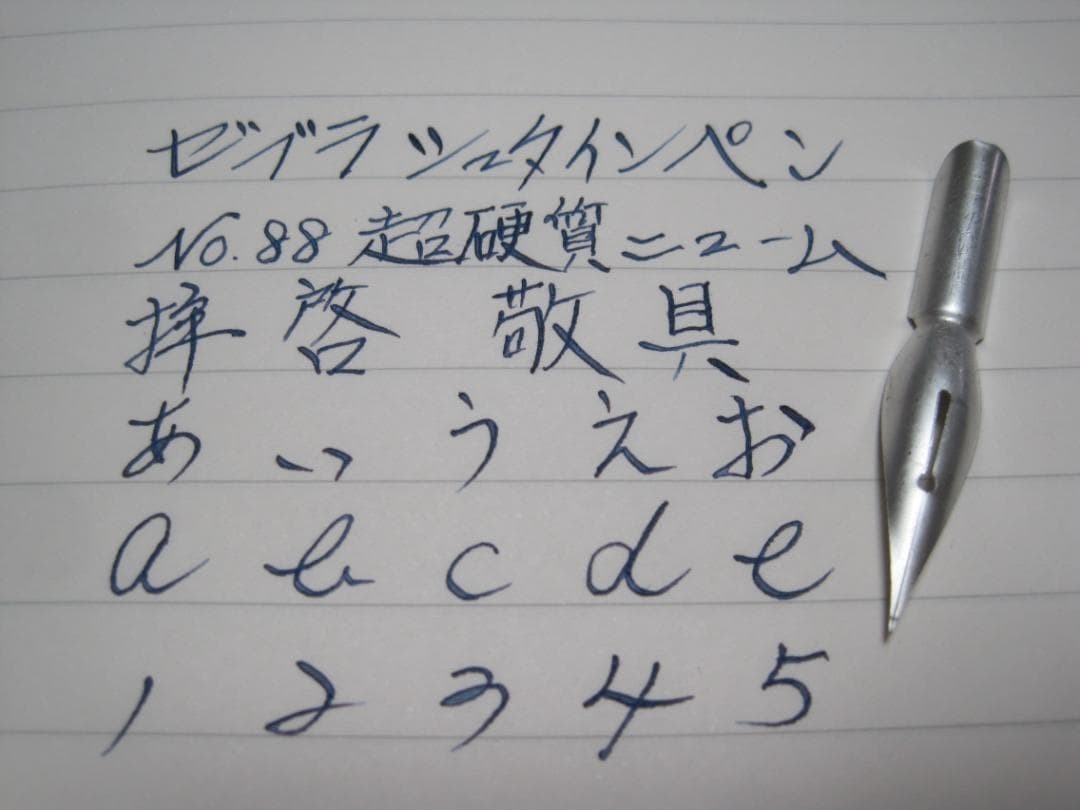 ゼブラ シュタインペン
No.88 超硬質ニューム
拝 啓 敬 具
あ い う え お
a b c d e
1 2 3 4 5